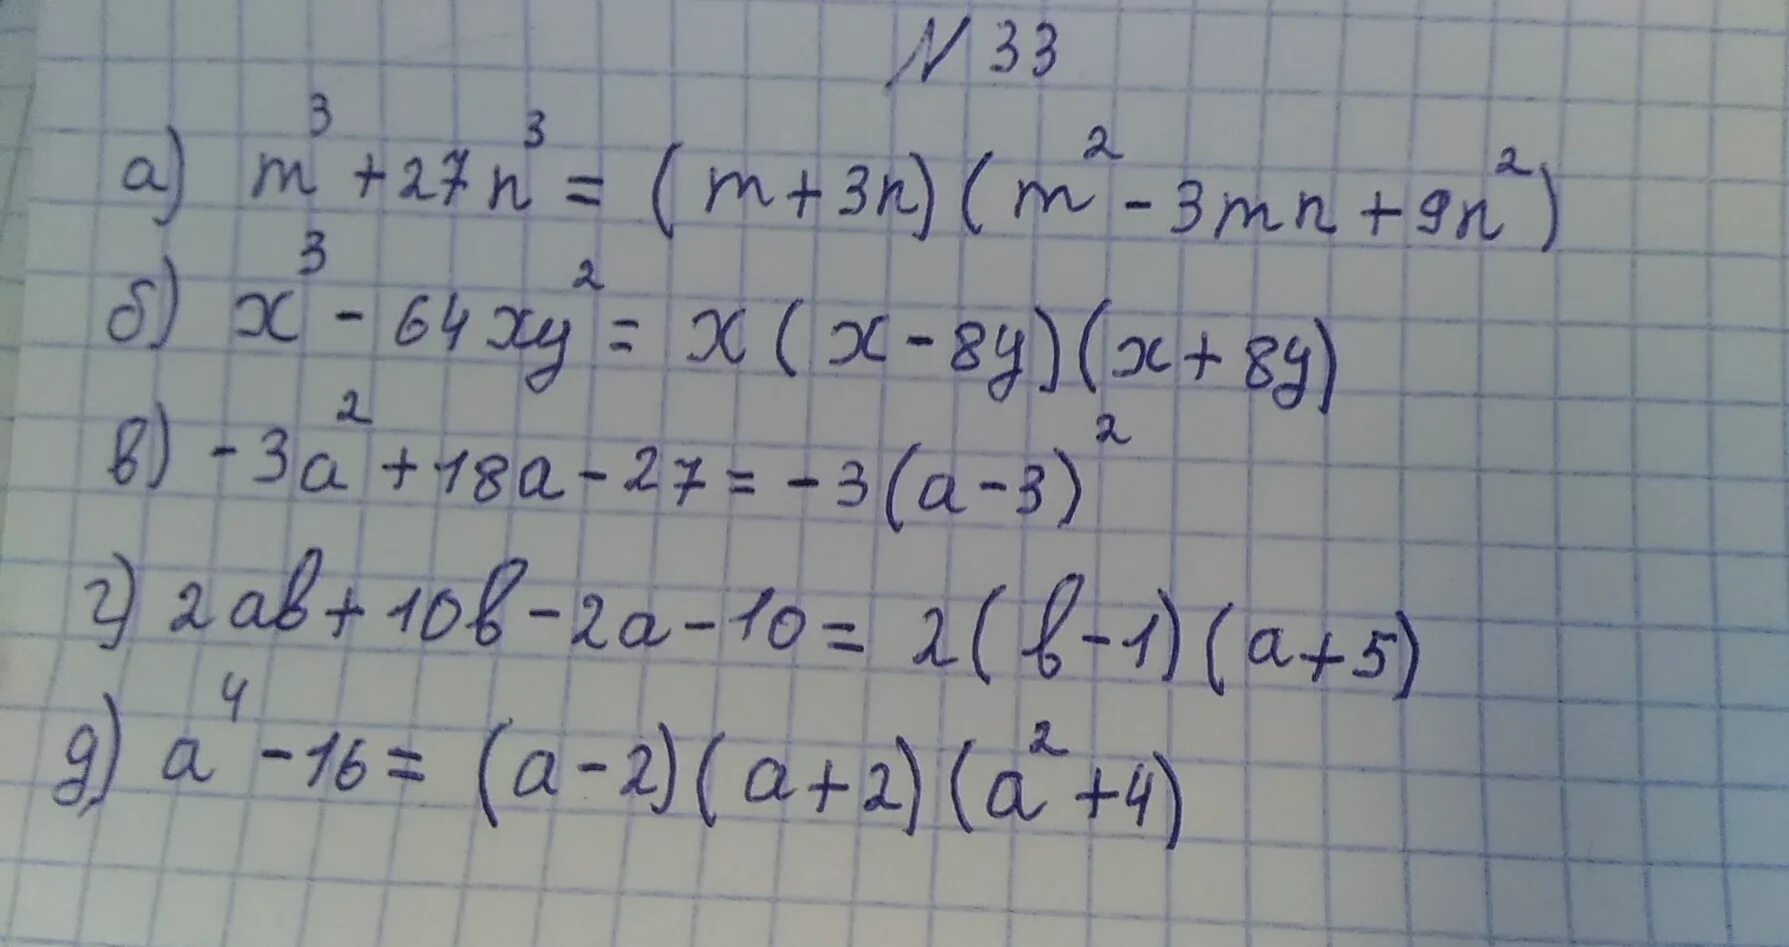 N 33
а) m³ + 27n³ = (m + 3n)(m² - 3mn + 9n²)
б) x³ - 64xy² = x(x - 8y)(x + 8y)
в) -3a² + 18a - 27 = -3(a - 3)²
г) 2ab + 10b - 2a - 10 = 2(b - 1)(a + 5)
д) a⁴ - 16 = (a - 2)(a + 2)(a² + 4)